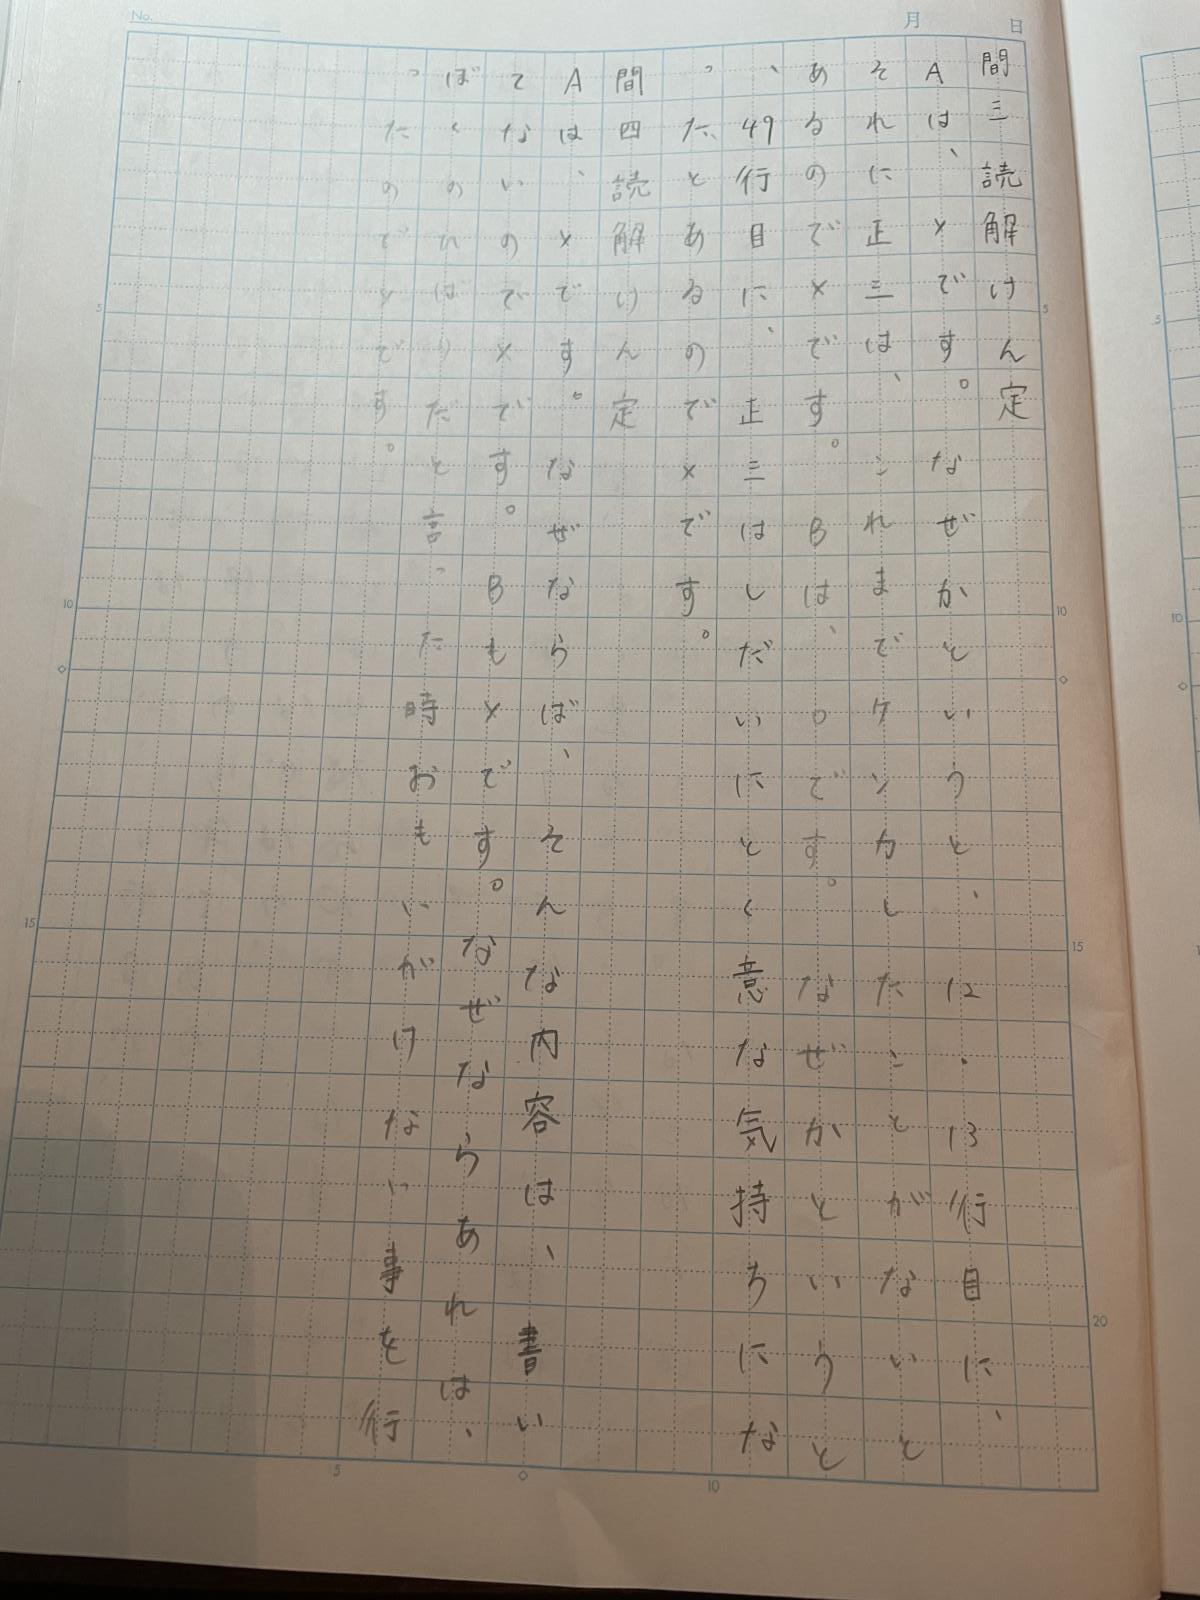 No.
月 日
間三読解けん定
Aは、×です。なぜかというと、12・13行目に、
それに正三は、これまでケンカしたことがないと
あるので×です。Bは、○です。なぜかというと
、49行目に、正三はしだいにとく意な気持ちにな
った、とあるので×です。
間四読解けん定
Aは、×です。なぜならば、そんな内容は、書い
てないので×です。Bも×です。なぜならあれは、
ぼくのひばりだと言った時おもいがけない事を行
ったので×です。
5
10
15
20
5
10
5
10
15
5
10